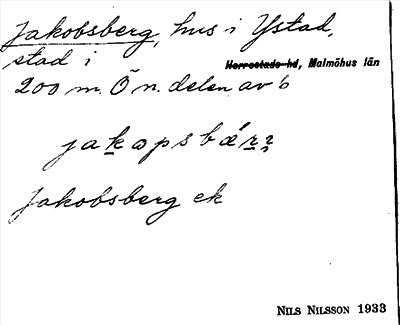 Jakobsberg, hus i Ystad,
stad i Herrestads hd, Malmöhus län
200 m. Ö n. delen av b
Jakobsberg ek
NILS NILSSON 1933